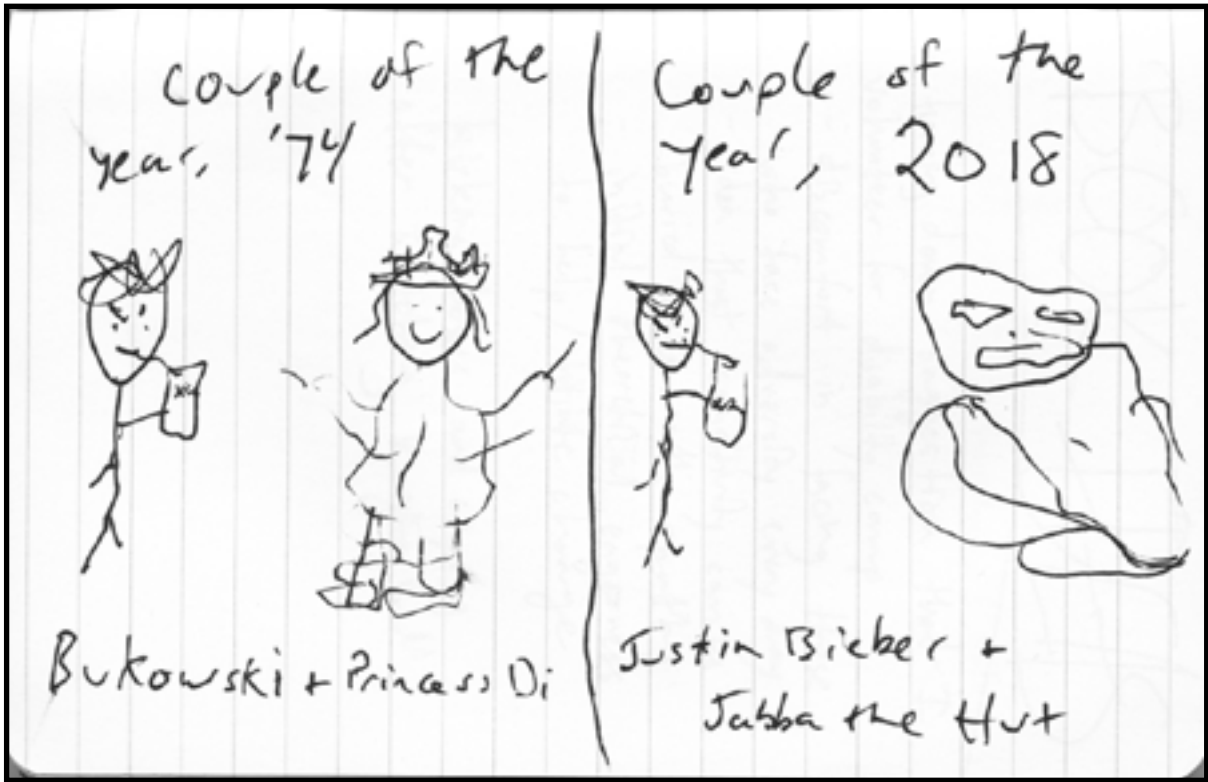 Couple of the
year, '74
Bukowski + Princess Di
Couple of the
year, 2018
Justin Bieber +
Jabba the Hut